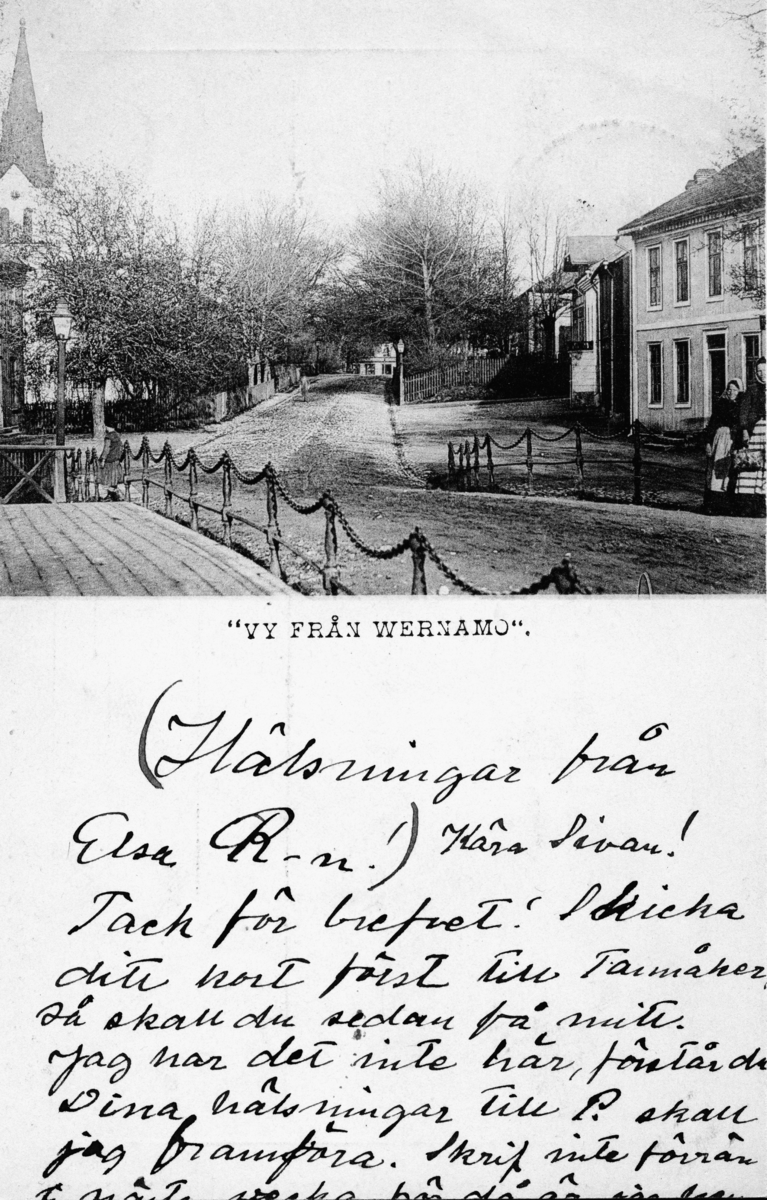 "VY FRÅN WERNAMO".
(Hälsningar från
Elsa R-n!) Kära Sivan!
Tack för brefvet! Skicka
ditt kort först till Tannåker,
så skall du sedan få mitt.
Jag har det inte här, förstår du
Dina hälsningar till P. skall
jag framföra. Skrif inte förrän